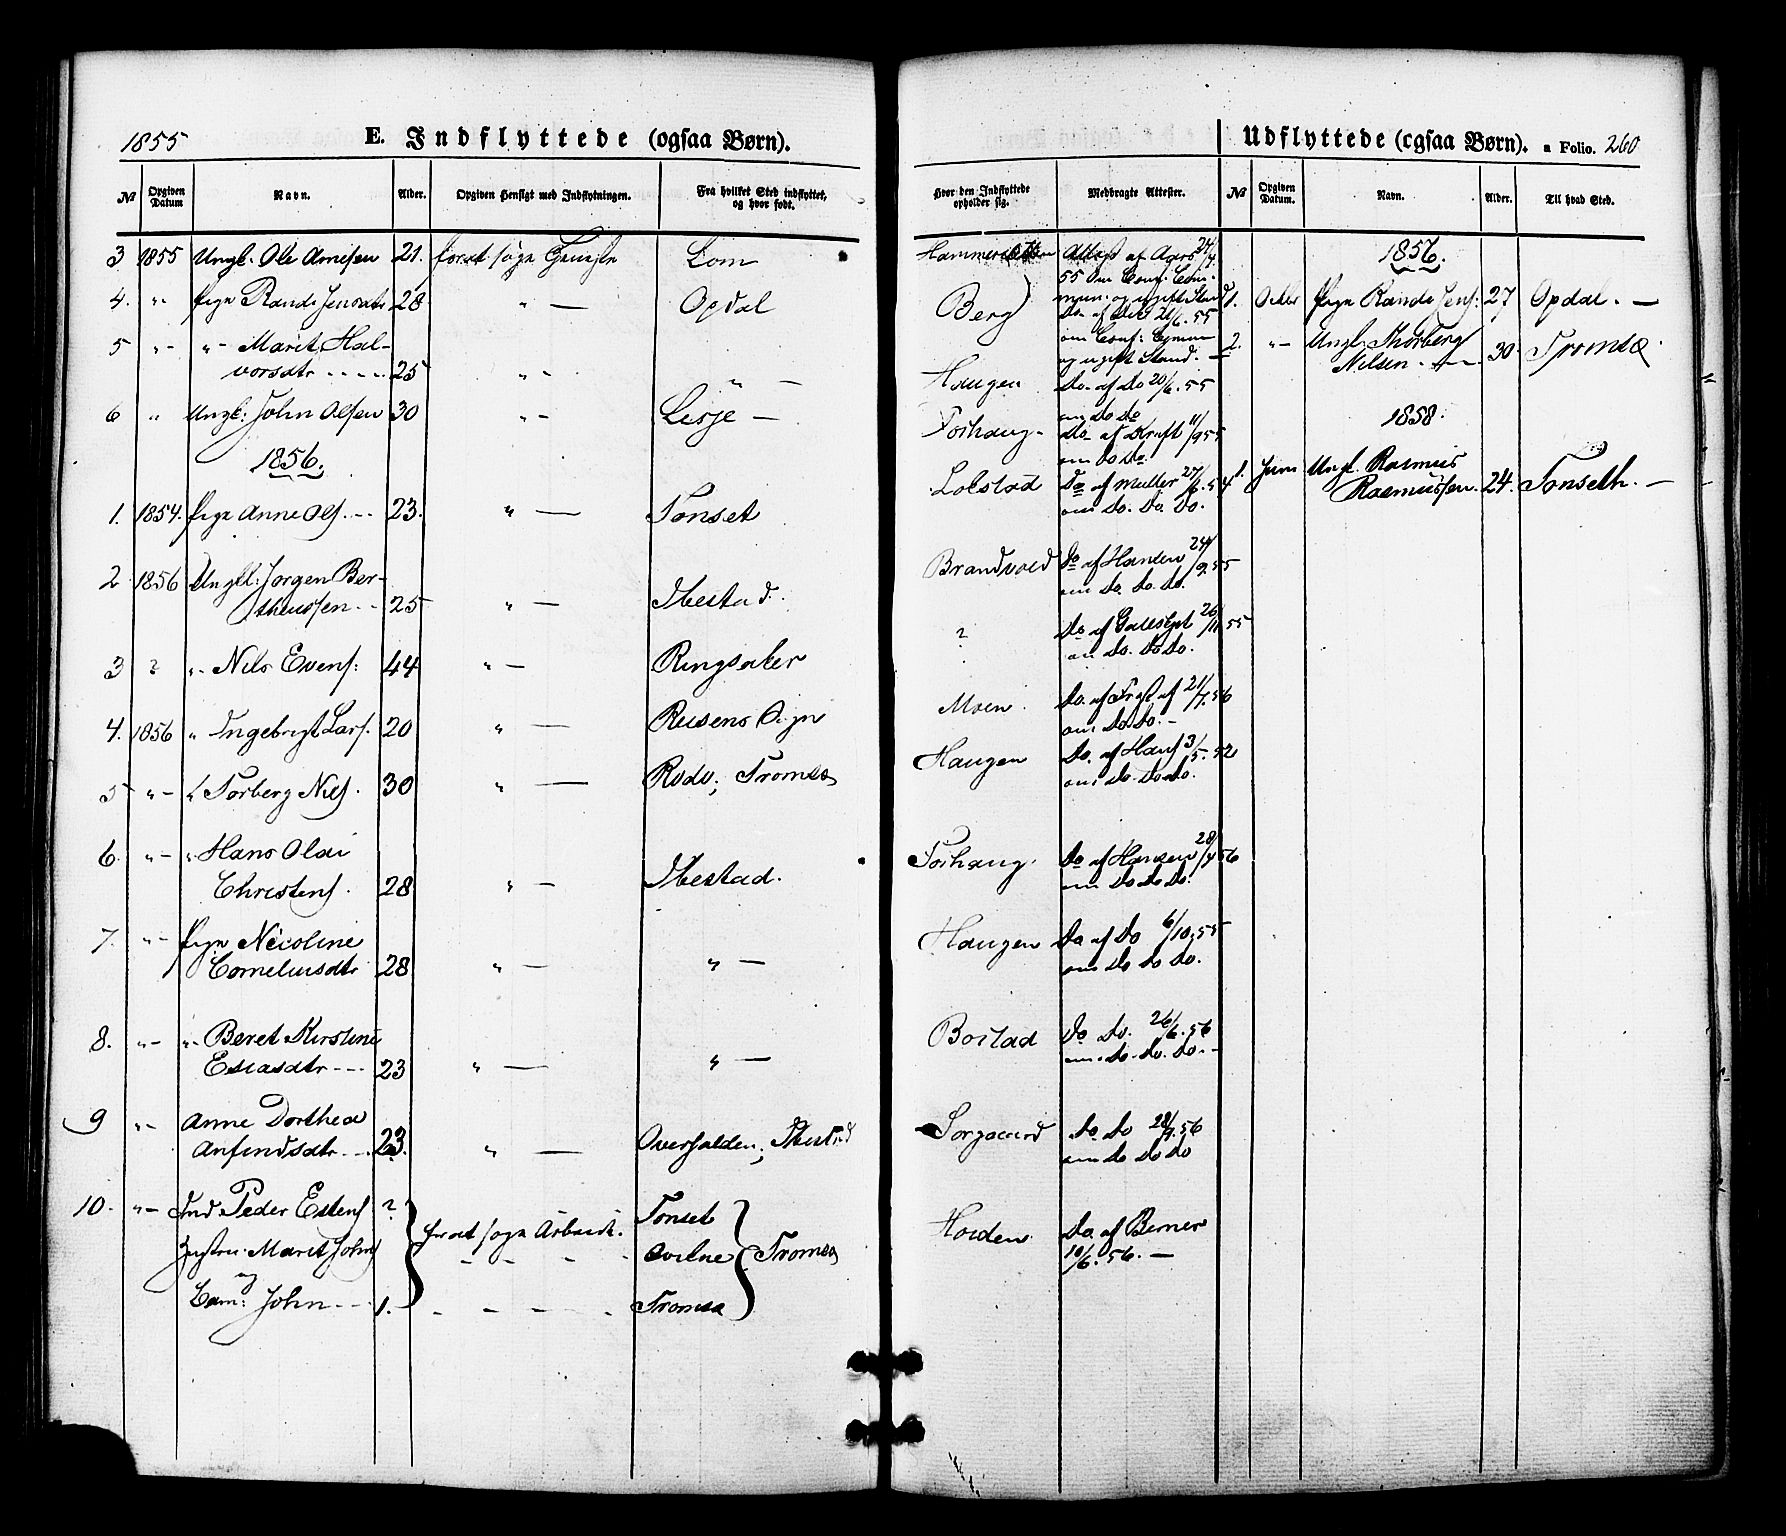 1855
E. Indflyttede (ogsaa Børn).
№
Opgiven Datum
Navn.
Alder.
Opgiven Hensigt med Indflytningen.
Fra hvilket Sted indflyttet, og hvor født.
3 1855 Ungk. Ole Arnesen 21. for at søge Tjeneste Lom
4. "- Pige Randi Jensdtr 28 " — Opdal
5 "- "- Marit Hal-
vorsdtr ---- 25 " - " —
6 " Ungk: John Olsen 30 " - Lesje —
1856.
1. 1854. Pige Anne Ols. -- 23. " — Tonset
2 1856 Ungk: Jørgen Ber-
theussen -- 25 " — Ibestad.
3 ? "- Nils Evens: 44 " — Ringsaker
4. 1856 " Ingebrigt Lars. 20 " —
5 "- " Torberg Niels. 30 " — Rødø; Tromsø
6. "- " Hans Olai
Christens. 28 " — Ibestad.
7. "- Pige Nicoline
Corneliusdtr 28 " — " —
8. "- "- Beret Kirstine
Esiasdtr --- 23 " — " —
9 "- Anne Dorthea
Anfindsdtr --- 23. " — Overhalden; Ibestad
10. "- Ind. Peder Estens ? for at søge Arbeide. Tonset
Hustru: Marit Johns - - - Tromsø
og
Barn: John --- 1. - - - - Tromsø
Udflyttede (ogsaa Børn). a Folio. 260
Hvor den Indflyttede opholder sig.
Medbragte Attester.
№
Opgiven Datum.
Navn.
Alder.
Til hvad Sted.
Attest af Aars 24/4
55 om Conf: Com-
mun: og ugift Stand
Berg Do. af 21/6.55
om Conf: Commun
og ugift Stand. —
Haugen Do. af Do 20/6.55
om Do Do
Do. af Kraft 11/9 55
om Do Do.
Do af Müller 27/6.54
om Do. Do. Do.
Brandvold Do af Hansen 24/9.55
om Do. Do. Do.
? Do af 26/11.55
om Do. Do Do.
Moen. Do. af 21/7.56
om Do Do. -
Haugen Do. af Hans 3/5.52
om Do. Do Do.
Do af Hansen 28/4 56
om Do Do Do.
Haugen Do af Do 6/10.55
om Do Do Do.
Do Do. 26/6.56
om. Do. Do. Do. -
Sørgaard Do. Do 28/9.56
om Do Do Do
Do. af Berner
10/6.56. —
1857.
1. Octbr Pige Randi Jens: 27 Opdal. —
2. "- Ungk. Thorberg
Nilsen. -- 30. Tromsø.
1858.
1. Juni Ungk. Rasmus
Rasmussen. 24. Tonseth. —